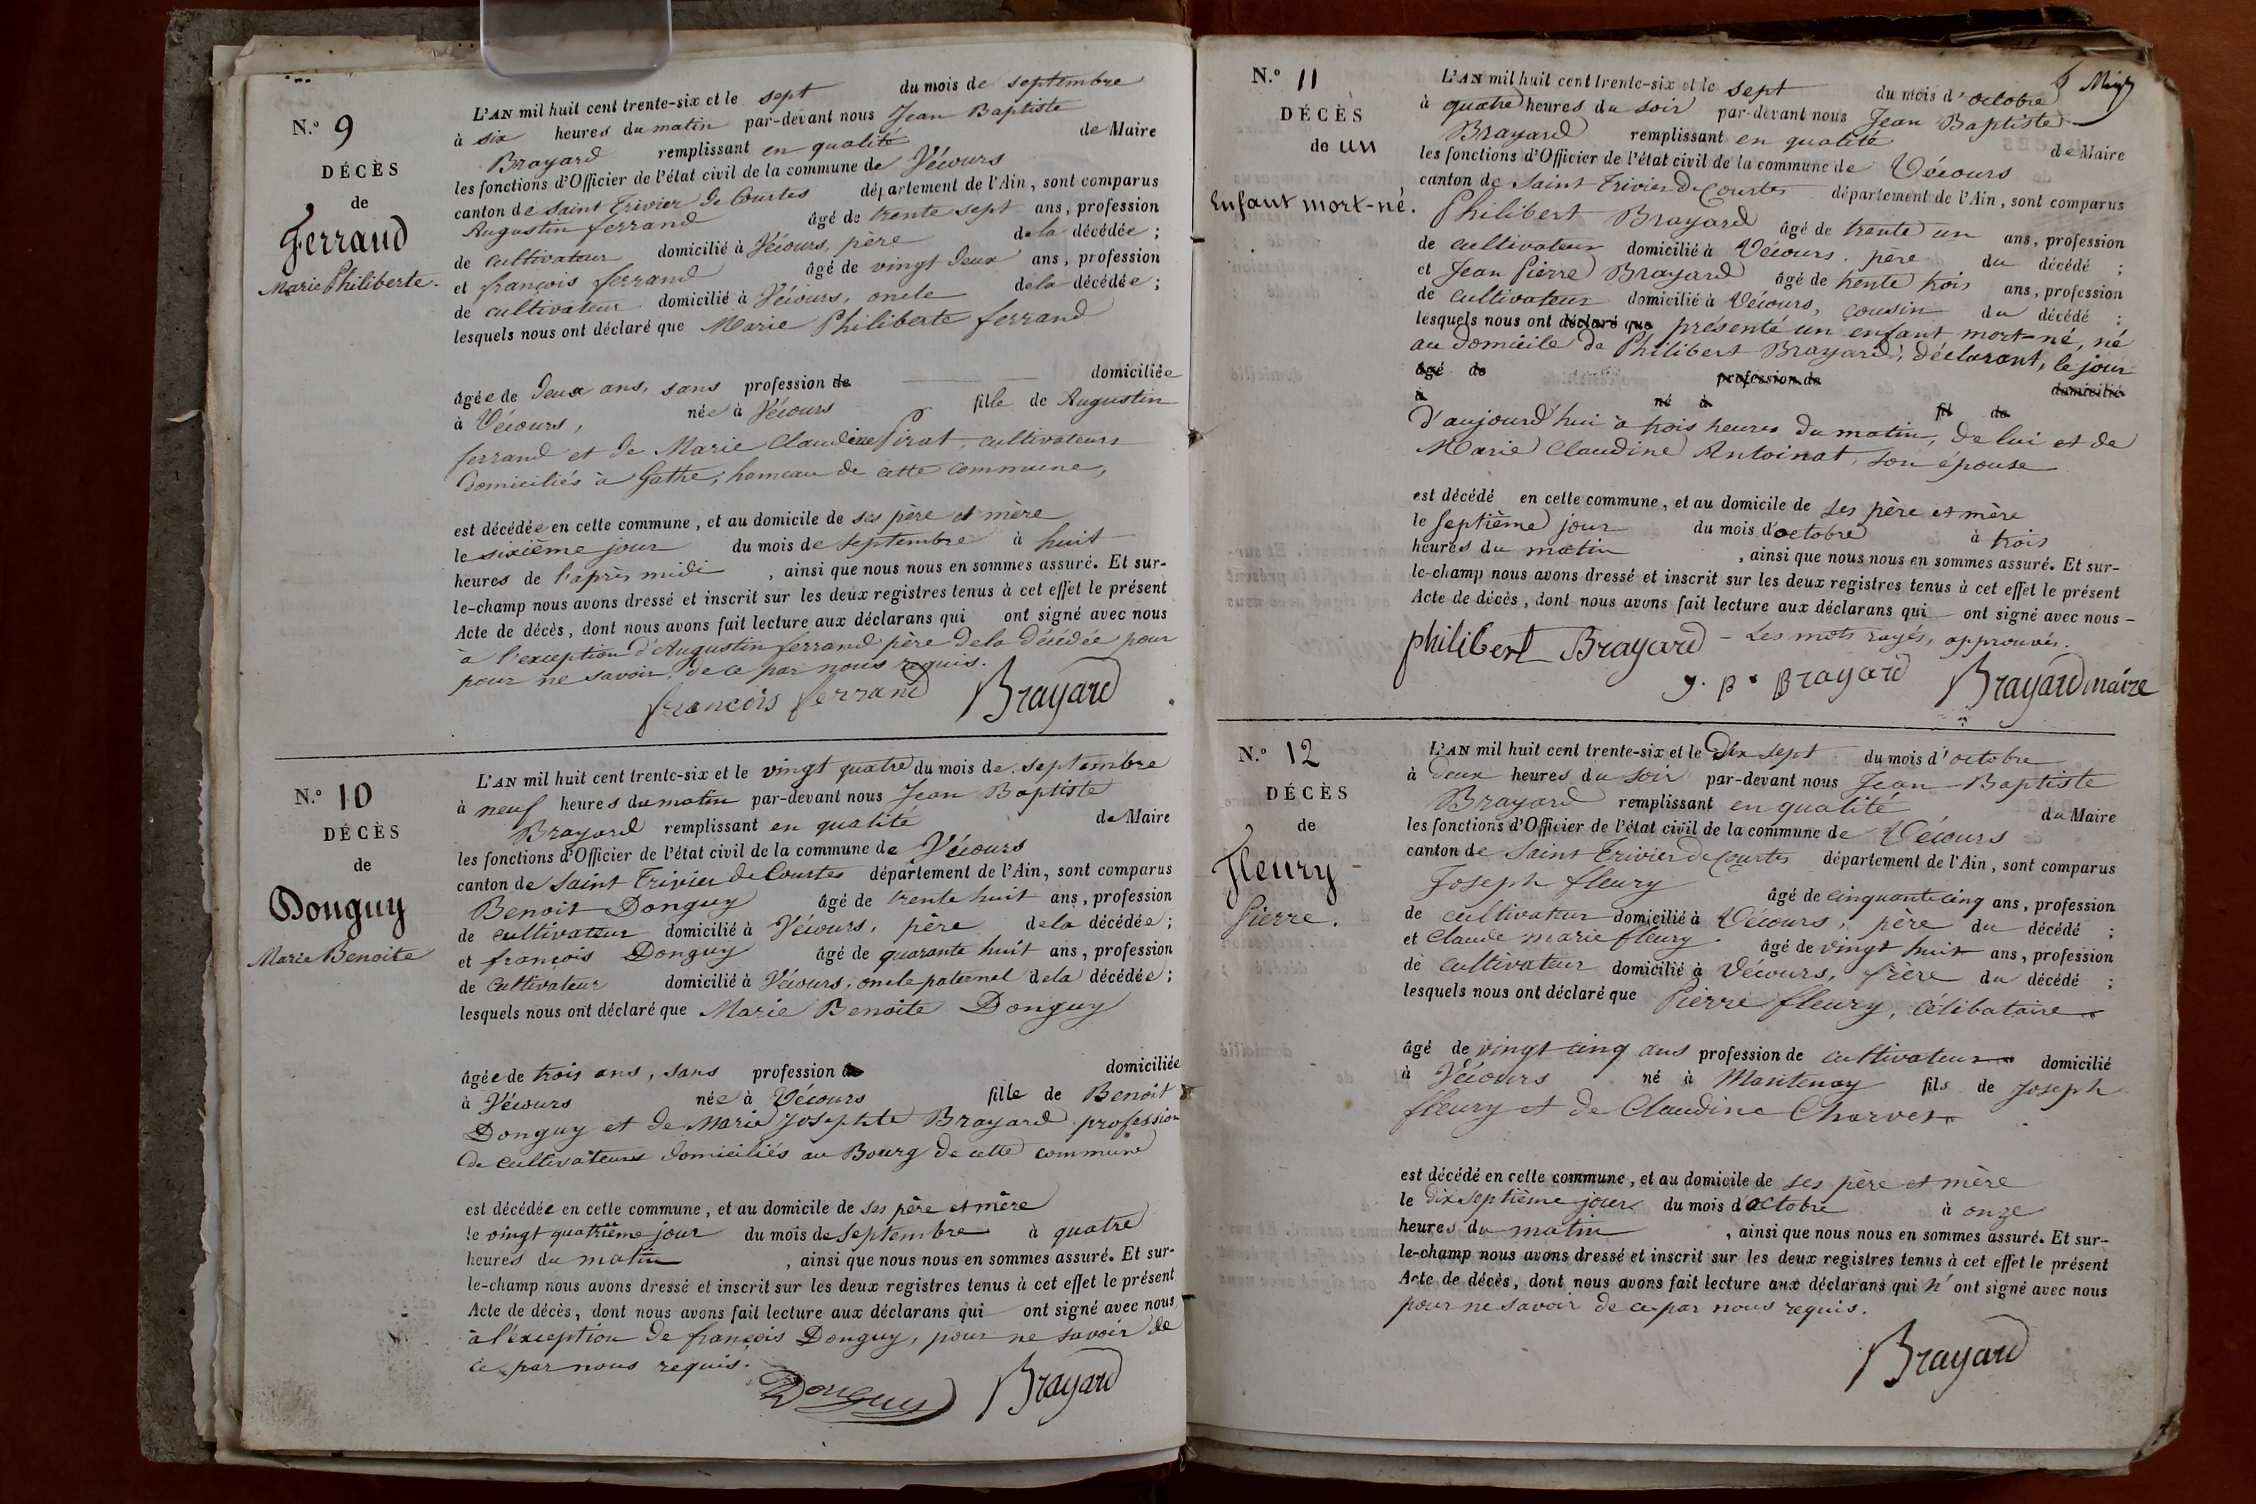 N.º 9
DÉCÈS
de
Ferrand
Marie Philiberte.
L'AN mil huit cent trente-six et le sept du mois de septembre
à six heures du matin par-devant nous Jean Baptiste
Brayard remplissant en qualité de Maire
les fonctions d'Officier de l'état civil de la commune de Vécours
canton de Saint Trivier de Courtes département de l'Ain, sont comparus
Augustin ferrand âgé de trente sept ans, profession
de cultivateur domicilié à Vécours, père de la décédée ;
et françois ferrand âgé de vingt deux ans, profession
de cultivateur domicilié à Vécours, oncle de la décédée ;
lesquels nous ont déclaré que Marie Philiberte ferrand
âgée de deux ans, sans profession de domiciliée
à Vécours, née à Vécours fille de Augustin
ferrand et de Marie Claudine Pirat, cultivateurs
domiciliés à Gathe, hameau de cette commune,
est décédée en cette commune, et au domicile de ses père et mère
le sixième jour du mois de septembre à huit
heures de l'après midi , ainsi que nous nous en sommes assuré. Et sur-
le-champ nous avons dressé et inscrit sur les deux registres tenus à cet effet le présent
Acte de décès, dont nous avons fait lecture aux déclarans qui ont signé avec nous
à l'exception d'Augustin ferrand père de la décédée pour
pour ne savoir de ce par nous requis.
francois ferrand Brayard
N.º 10
DÉCÈS
de
Donguy
Marie Benoite
L'AN mil huit cent trente-six et le vingt quatre du mois de septembre
à neuf heures du matin par-devant nous Jean Baptiste
Brayard remplissant en qualité de Maire
les fonctions d'Officier de l'état civil de la commune de Vécours
canton de Saint Trivier de Courtes département de l'Ain, sont comparus
Benoit Donguy âgé de trente huit ans, profession
de cultivateur domicilié à Vécours, père de la décédée ;
et françois Donguy âgé de quarante huit ans, profession
de cultivateur domicilié à Vécours, oncle paternel de la décédée ;
lesquels nous ont déclaré que Marie Benoite Donguy
âgée de trois ans, sans profession de domiciliée
à Vécours née à Vécours fille de Benoit
Donguy et de Marie Josephte Brayard profession
de cultivateurs domiciliés au Bourg de cette commune
est décédée en cette commune, et au domicile de ses père et mère
le vingt quatrième jour du mois de septembre à quatre
heures du matin , ainsi que nous nous en sommes assuré. Et sur-
le-champ nous avons dressé et inscrit sur les deux registres tenus à cet effet le présent
Acte de décès, dont nous avons fait lecture aux déclarans qui ont signé avec nous
à l'exception de françois Donguy, pour ne savoir de
ce par nous requis.
Donguy Brayard
N.º 11
DÉCÈS
de un
Enfant mort-né.
L'AN mil huit cent trente-six et le sept du mois d'octobre
à quatre heures du soir par-devant nous Jean Baptiste
Brayard remplissant en qualité de Maire
les fonctions d'Officier de l'état civil de la commune de Vécours
canton de Saint Trivier de Courtes département de l'Ain, sont comparus
Philibert Brayard âgé de trente un ans, profession
de cultivateur domicilié à Vécours, père du décédé ;
et Jean Pierre Brayard âgé de trente trois ans, profession
de cultivateur domicilié à Vécours, cousin du décédé ;
lesquels nous ont déclaré que présenté un enfant mort-né, né
au domicile de Philibert Brayard, déclarant, le jour
âgé de profession de domicilié
à né à fil de
d'aujourd'hui à trois heures du matin, de lui et de
Marie Claudine Antoinat, son épouse
est décédé en cette commune, et au domicile de ses père et mère
le septième jour du mois d'octobre à trois
heures du matin , ainsi que nous nous en sommes assuré. Et sur-
le-champ nous avons dressé et inscrit sur les deux registres tenus à cet effet le présent
Acte de décès, dont nous avons fait lecture aux déclarans qui ont signé avec nous -
philibert Brayard - Les mots rayés, approuvés.
J. P. Brayard Brayard maire
N.º 12
DÉCÈS
de
Fleury
Pierre.
L'AN mil huit cent trente-six et le dix sept du mois d'octobre
à deux heures du soir par-devant nous Jean Baptiste
Brayard remplissant en qualité de Maire
les fonctions d'Officier de l'état civil de la commune de Vécours
canton de Saint Trivier de Courtes département de l'Ain, sont comparus
Joseph fleury âgé de cinquante cinq ans, profession
de cultivateur domicilié à Vécours, père du décédé ;
et Claude marie fleury âgé de vingt huit ans, profession
de cultivateur domicilié à Vécours, frère du décédé ;
lesquels nous ont déclaré que Pierre fleury, célibataire
âgé de vingt cinq ans profession de cultivateur domicilié
à Vécours né à Mantenay fils de Joseph
fleury et de Claudine Charvet
est décédé en cette commune, et au domicile de ses père et mère
le dix septième jour du mois d'octobre à onze
heures du matin , ainsi que nous nous en sommes assuré. Et sur-
le-champ nous avons dressé et inscrit sur les deux registres tenus à cet effet le présent
Acte de décès, dont nous avons fait lecture aux déclarans qui n'ont signé avec nous
pour ne savoir de ce par nous requis.
Brayard